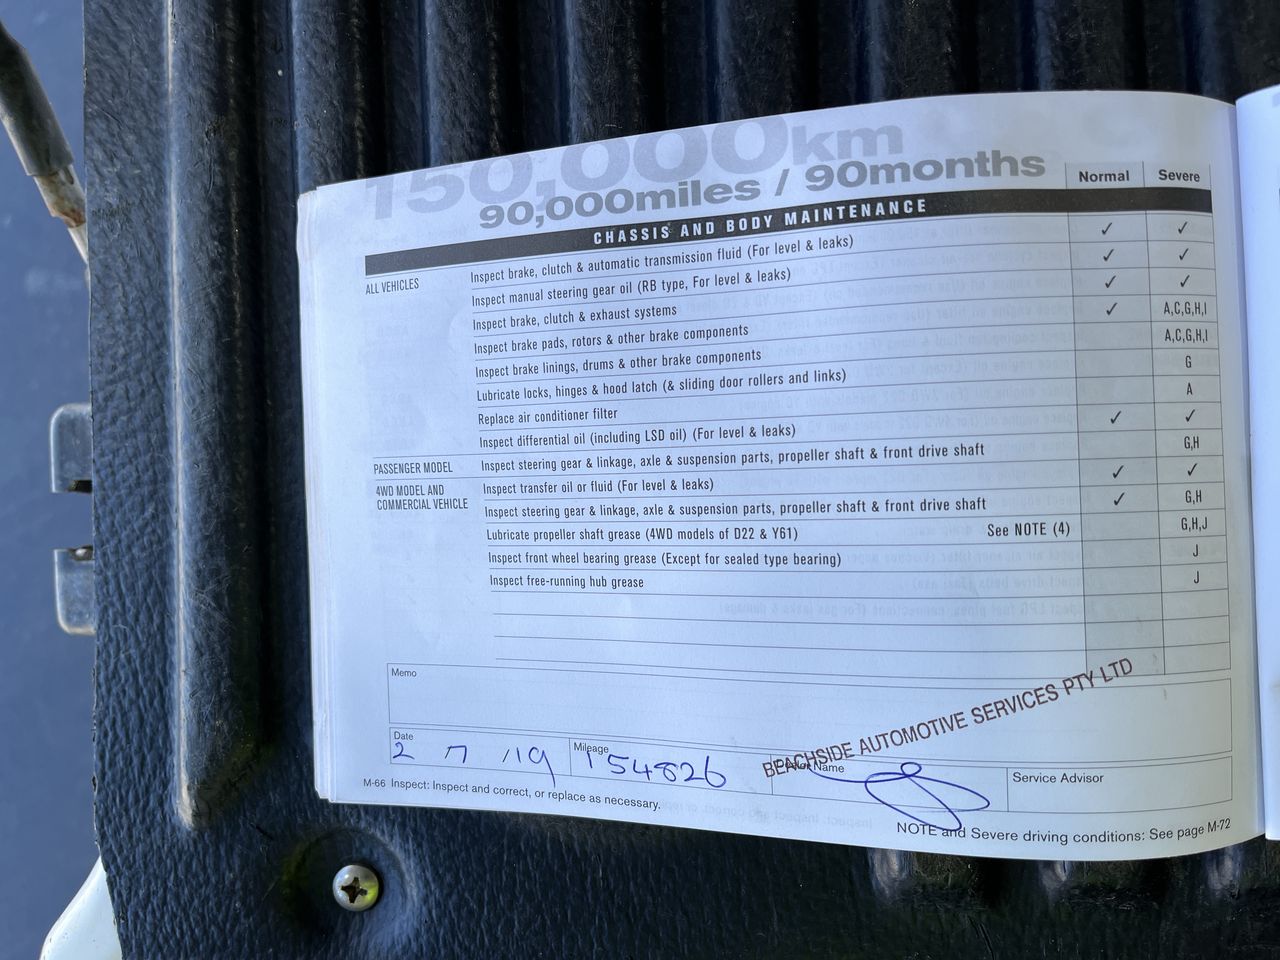 150,000km
90,000miles / 90months
Normal Severe
CHASSIS AND BODY MAINTENANCE
ALL VEHICLES Inspect brake, clutch & automatic transmission fluid (For level & leaks) ✓ ✓
Inspect manual steering gear oil (RB type, For level & leaks) ✓ ✓
Inspect brake, clutch & exhaust systems ✓ ✓
Inspect brake pads, rotors & other brake components ✓ A,C,G,H,I
Inspect brake linings, drums & other brake components A,C,G,H,I
Lubricate locks, hinges & hood latch (& sliding door rollers and links) G
Replace air conditioner filter A
Inspect differential oil (including LSD oil) (For level & leaks) ✓ ✓
PASSENGER MODEL Inspect steering gear & linkage, axle & suspension parts, propeller shaft & front drive shaft G,H
4WD MODEL AND
COMMERCIAL VEHICLE
Inspect transfer oil or fluid (For level & leaks) ✓ ✓
Inspect steering gear & linkage, axle & suspension parts, propeller shaft & front drive shaft ✓ G,H
Lubricate propeller shaft grease (4WD models of D22 & Y61) See NOTE (4) G,H,J
Inspect front wheel bearing grease (Except for sealed type bearing) J
Inspect free-running hub grease J
Memo
BEACHSIDE AUTOMOTIVE SERVICES PTY LTD
Date 2 7 /19 Mileage 154826 Name Service Advisor
M-66 Inspect: Inspect and correct, or replace as necessary.
NOTE and Severe driving conditions: See page M-72